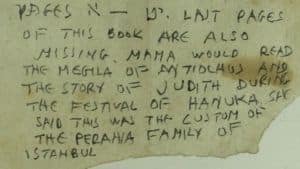 PAGES א — LAST PAGES
OF THIS BOOK ARE ALSO
MISSING. MAMA WOULD READ
THE MEGILA OF ANTIOCHUS AND
THE STORY OF JUDITH DURING
THE FESTIVAL OF HANUKA. SHE
SAID THIS WAS THE CUSTOM OF
THE PERAHIA FAMILY OF
ISTANBUL